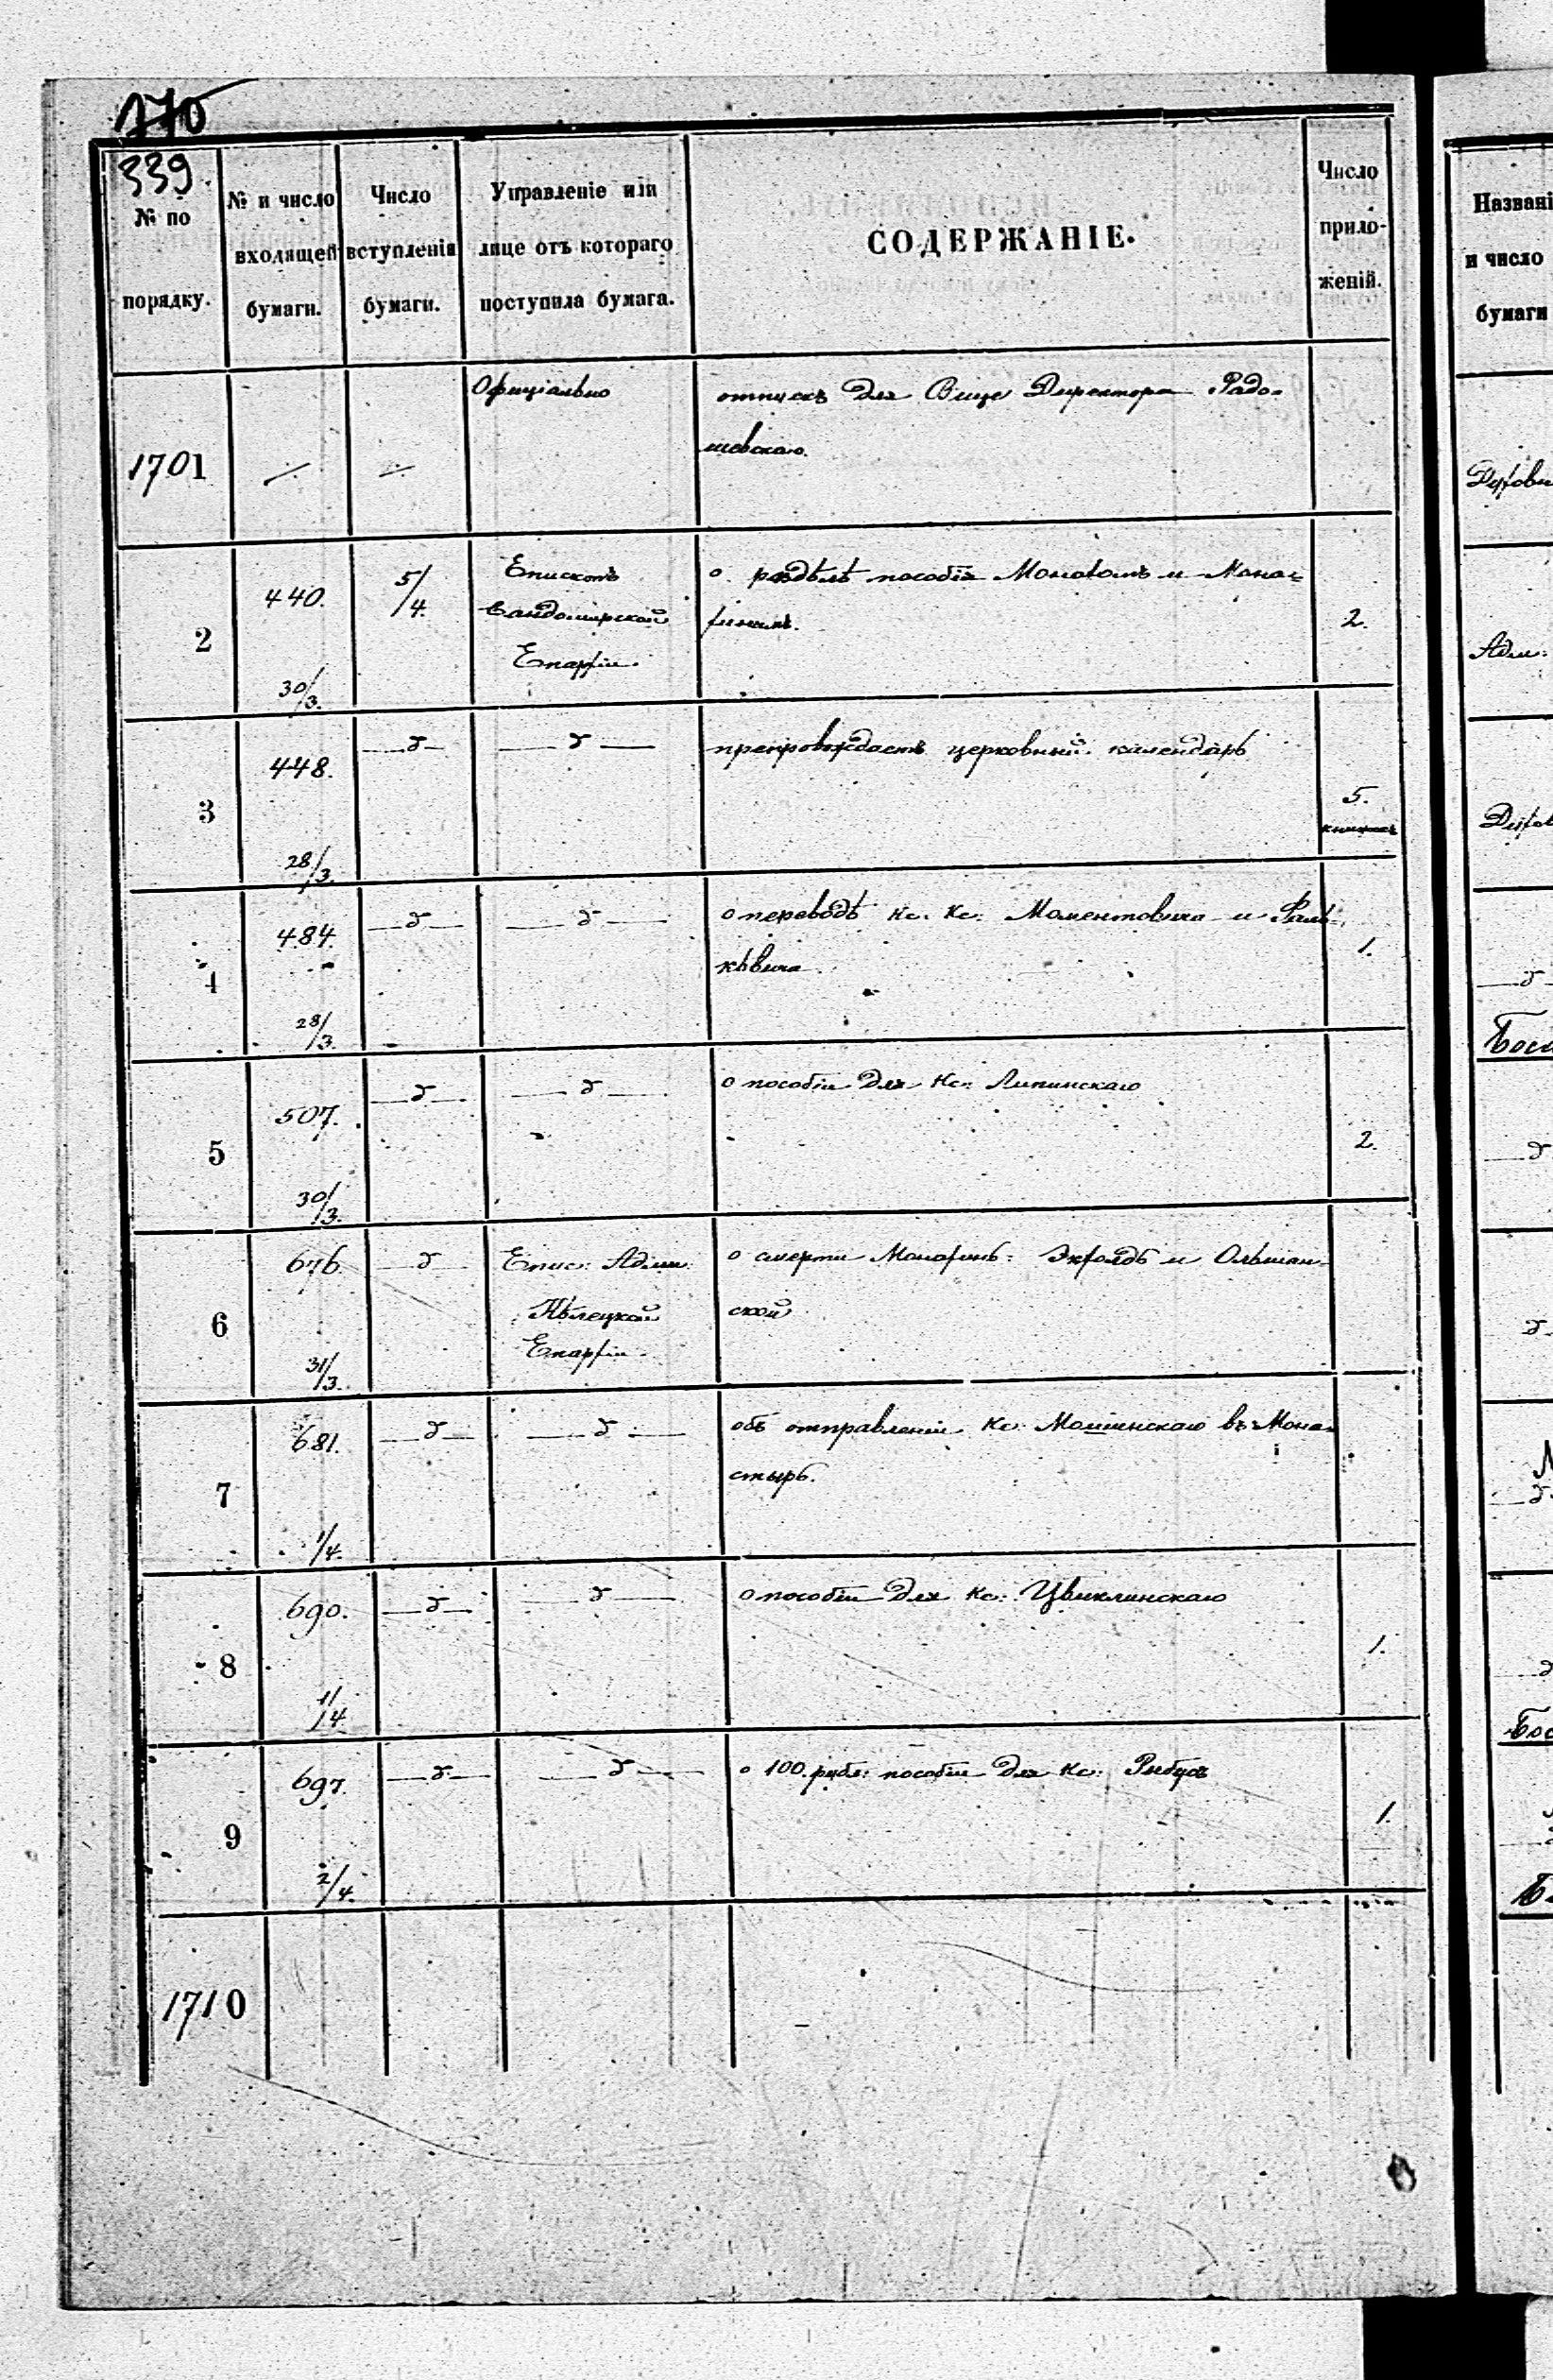 170
339.
№ по порядку.
№ и число входящей бумаги.
Число вступленія бумаги.
Управленіе или лице отъ котораго поступила бумага.
СОДЕРЖАНІЕ.
Число приложеній.
1701
Офиціально
отпускъ для Вице Директора Радо-
шевскаго.
2
440.
30/3.
5/4.
Епископъ
Сандомирской
Епархіи.
о раздѣлѣ пособія Монахомъ и Мона-
хинямъ.
2.
3
448.
28/3.
—д—
—д—
препровождаетъ церковный календарь
5.
книжекъ
4
484.
28/3.
—д—
—д—
о переводѣ Кс. Кс: Моментовича и
1.
5
507.
30/3.
—д—
—д—
о пособіи для Кс: Липинскаго
2.
6
676.
31/3.
—д—
Епис: Адми:
Кѣлецкой
Епархіи.
о смерти Монахинь: и Ольшан-
ской
7
681.
1/4.
—д—
—д—
объ отправленіи Кс: Мошинскаго въ Мона-
стырь.
8
690.
1/4
—д—
—д—
о пособіи для Кс: Цвиклинскаго
1.
9
697.
2/4.
—д—
—д—
о 100 рубл: пособіи для Кс:
1.
1710
Адм: